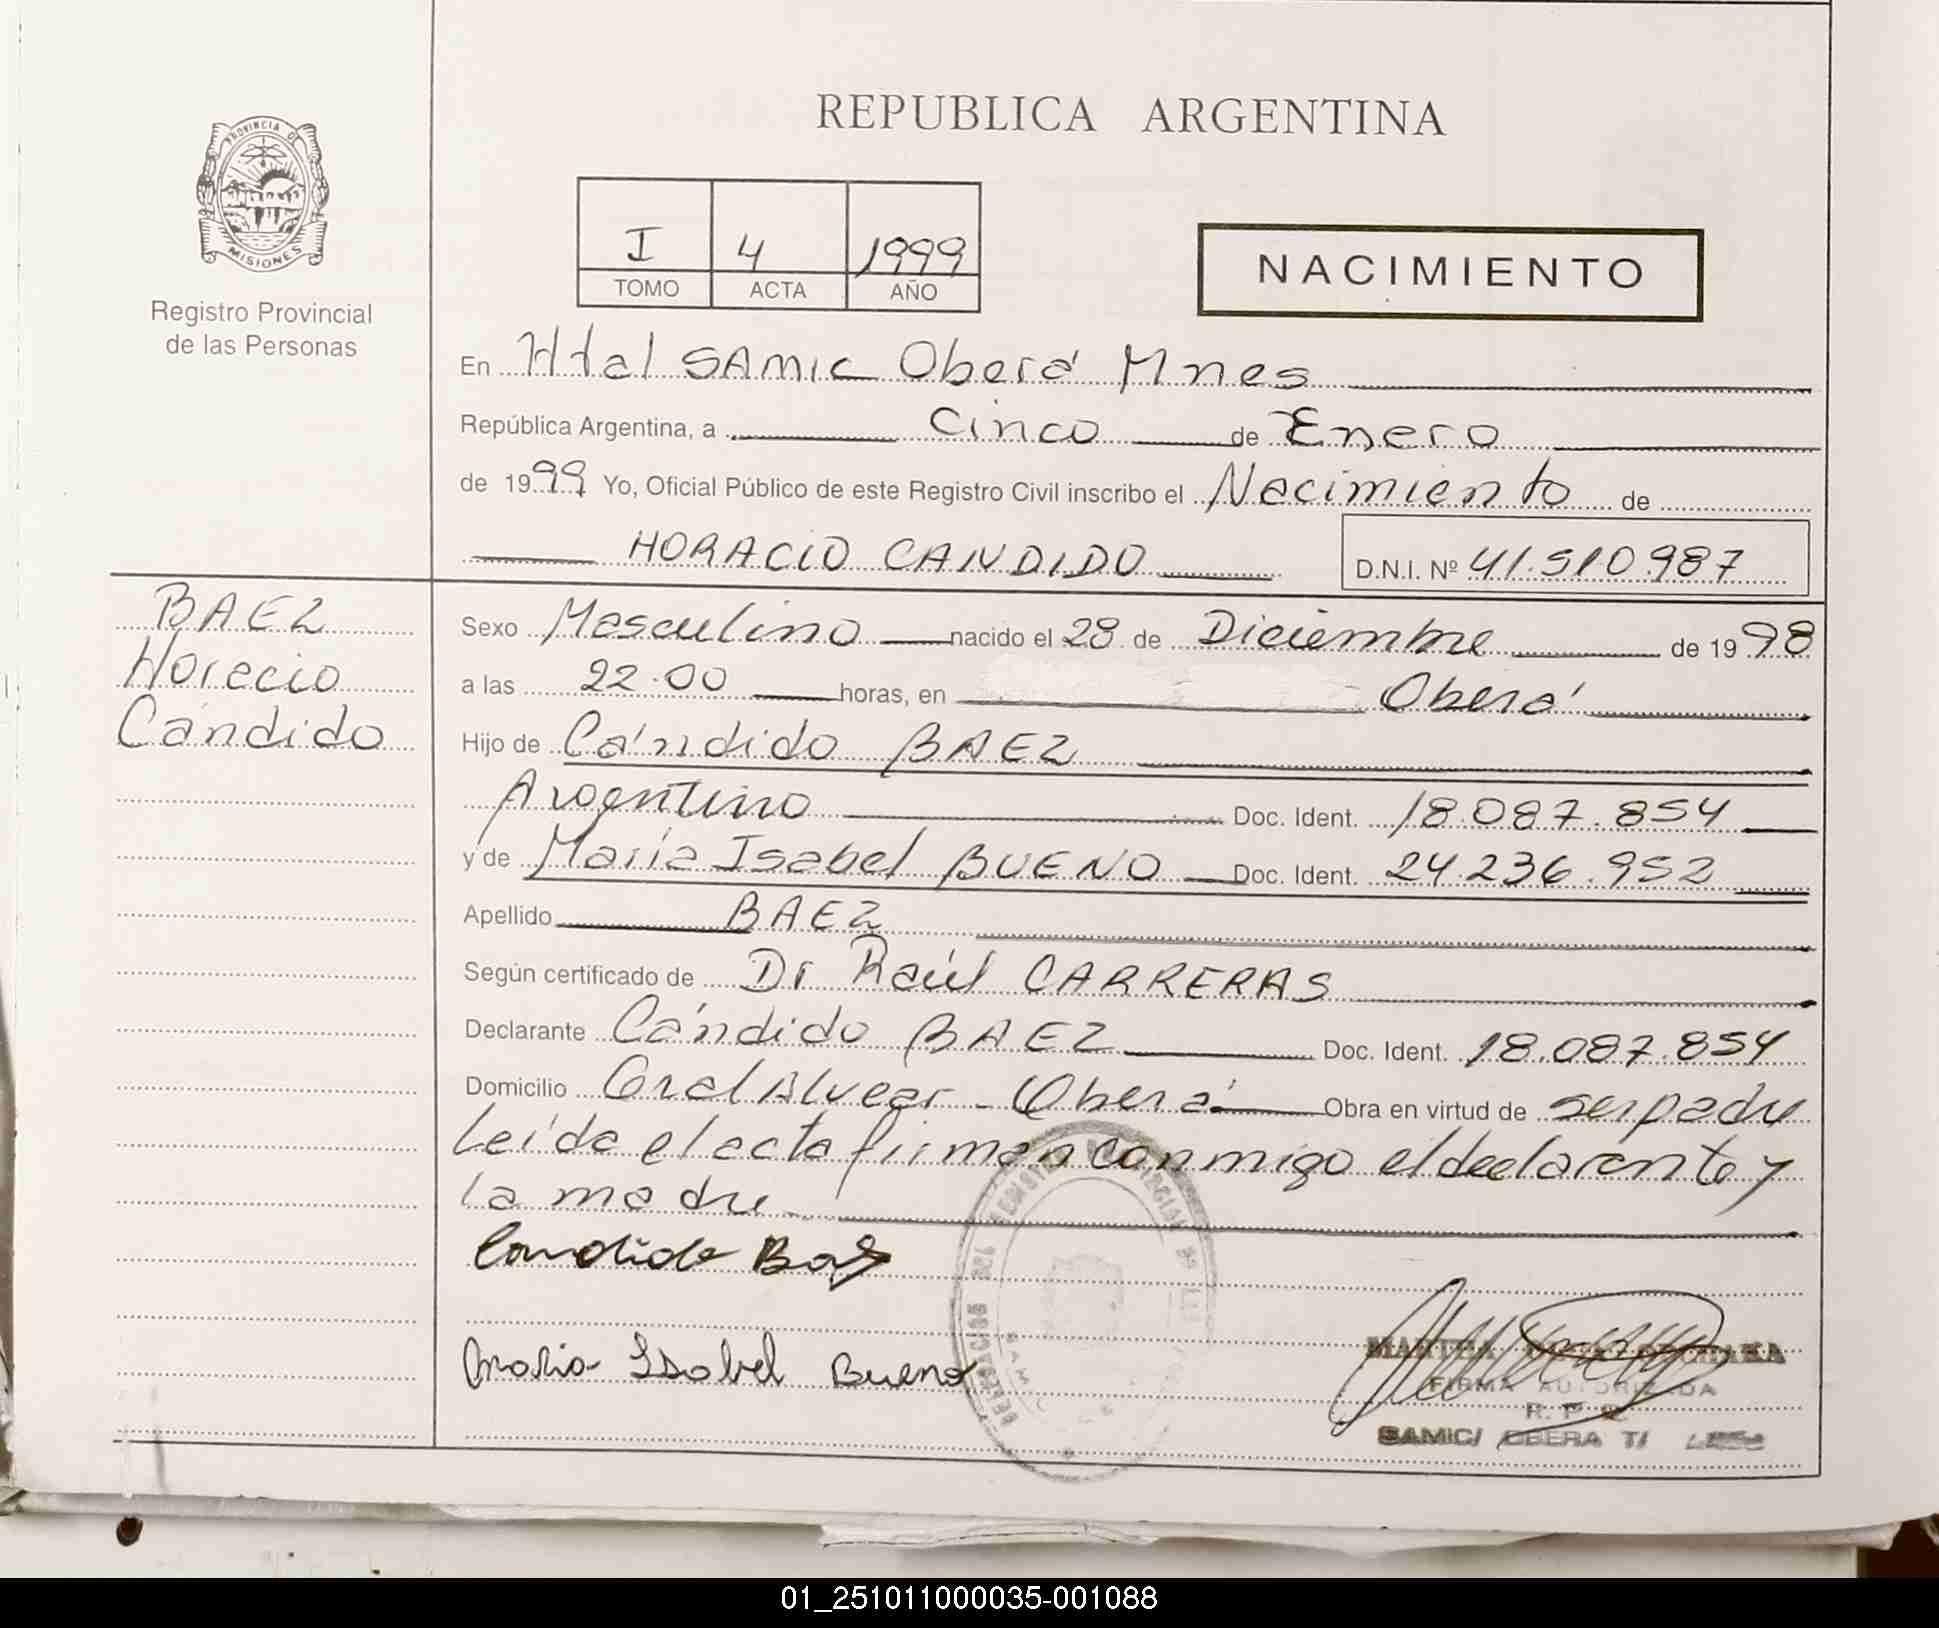 REPUBLICA ARGENTINA
PROVINCIA DE
MISIONES
Registro Provincial
de las Personas
I 4 1999
TOMO ACTA AÑO
NACIMIENTO
En Htal SAMIC Oberá Mnes
República Argentina, a Cinco de Enero
de 1999 Yo, Oficial Público de este Registro Civil inscribo el Nacimiento de
HORACIO CANDIDO D.N.I. Nº 41.510.987
BAEZ
Horacio
Cándido
Sexo Masculino nacido el 28 de Diciembre de 1998
a las 22.00 horas, en Oberá
Hijo de Cándido BAEZ
Argentino Doc. Ident. 18.087.854
y de María Isabel BUENO Doc. Ident. 24.236.952
Apellido BAEZ
Según certificado de Dr Raúl CARRERAS
Declarante Cándido BAEZ Doc. Ident. 18.087.854
Domicilio Gral Alvear - Oberá Obra en virtud de ser padre
Leída el acta firman conmigo el declarante y
la madre
Candido Baez
Maria Isabel Bueno
MARTHA
FIRMA AUTORIZADA
SAMIC/ OBERA
01_251011000035-001088